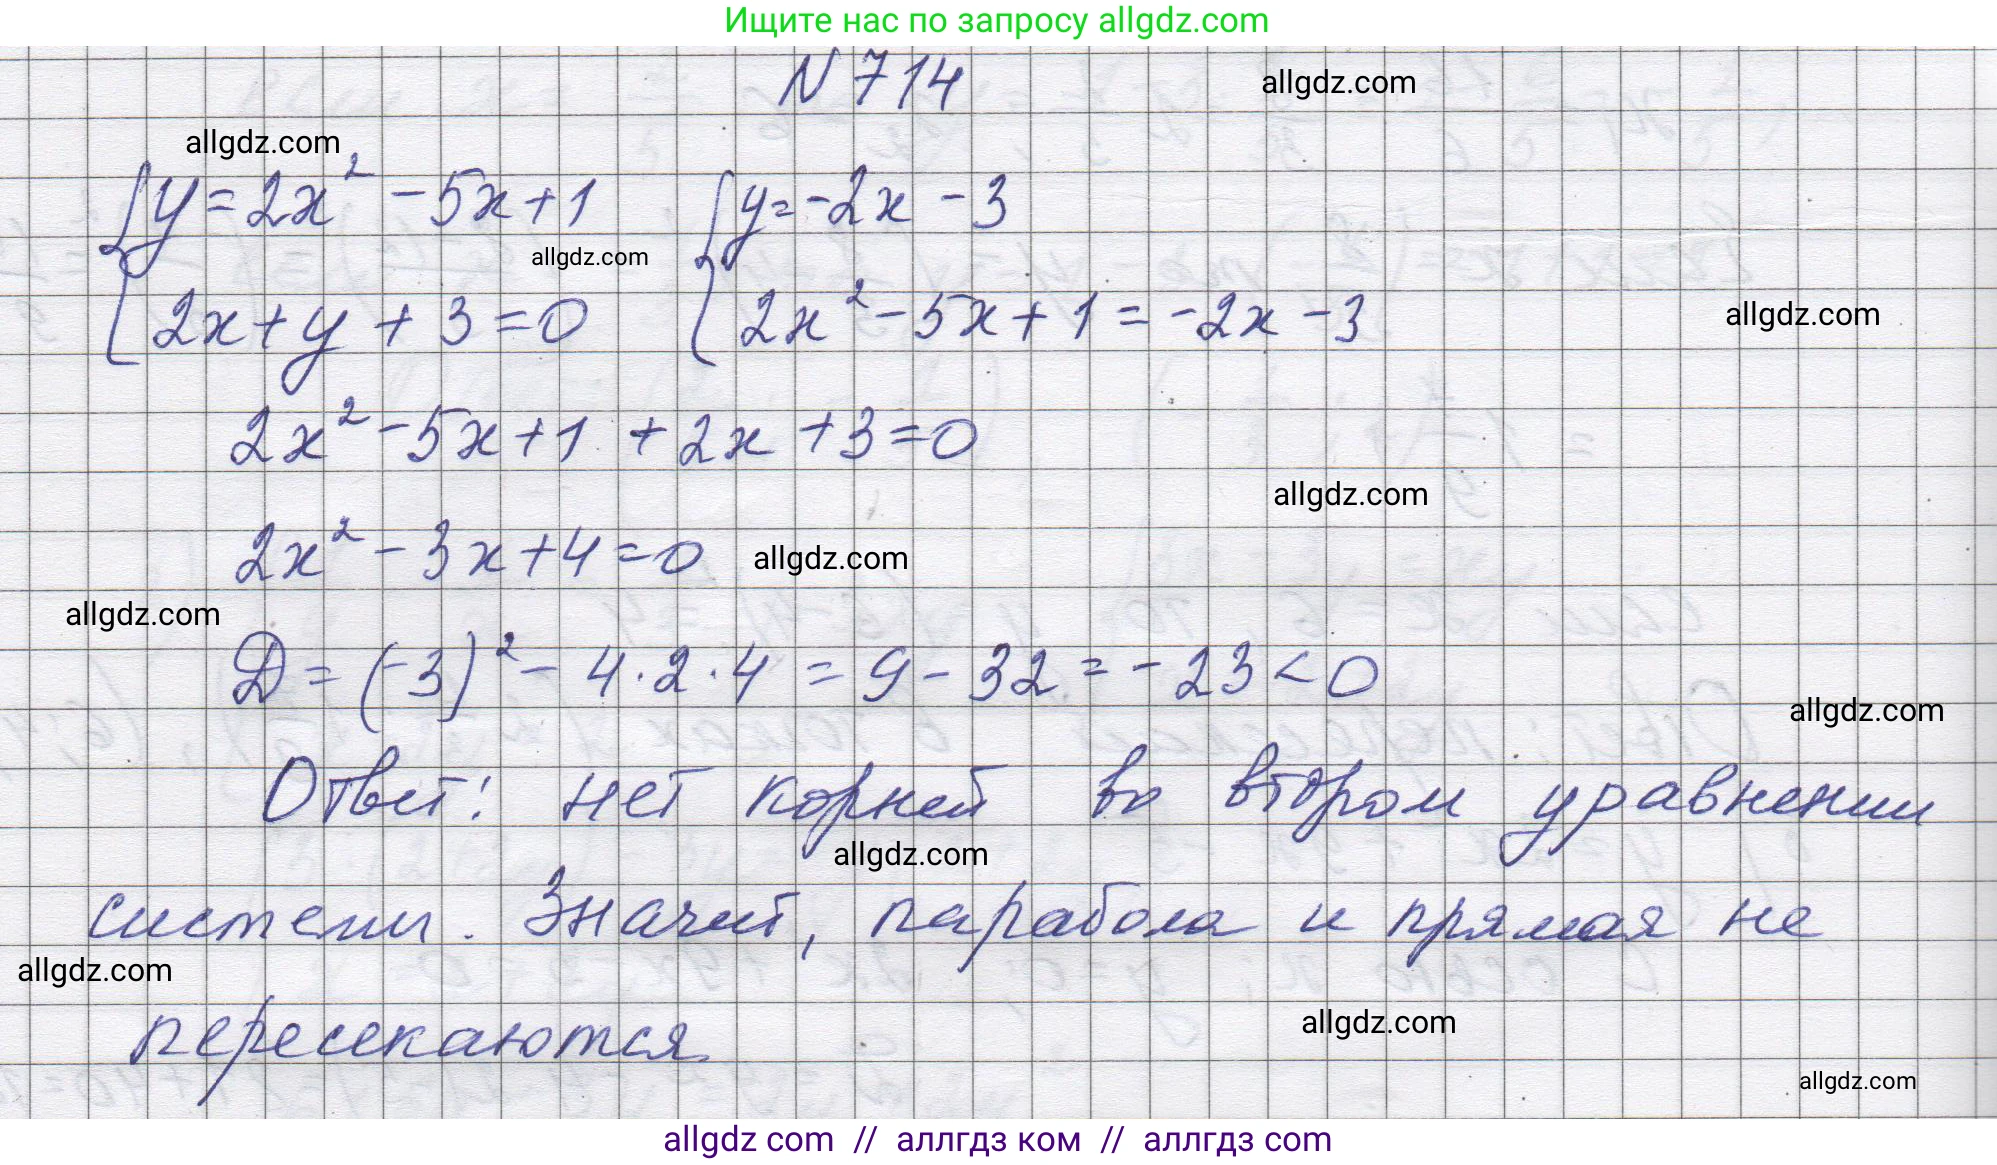 Ищите нас по запросу allgdz.com
N 714
allgdz.com
allgdz.com
y = 2x² - 5x + 1   y = -2x - 3
allgdz.com
2x + y + 3 = 0   2x² - 5x + 1 = -2x - 3
allgdz.com
2x² - 5x + 1 + 2x + 3 = 0
allgdz.com
2x² - 3x + 4 = 0
allgdz.com
allgdz.com
Д = (-3)² - 4 · 2 · 4 = 9 - 32 = -23 < 0
allgdz.com
Ответ: нет корней во втором уравнении
allgdz.com
системы. Значит, парабола и прямая не
allgdz.com
пересекаются
allgdz.com
allgdz.com
allgdz com // аллгдз ком // аллгдз com